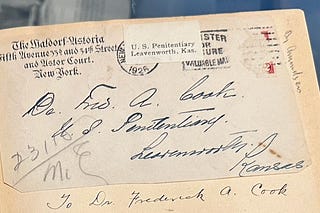 The Waldorf-Astoria
Fifth Avenue 33rd and 34th Streets
and Astor Court.
New York.
NEW
1926
U. S. Penitentiary
Leavenworth, Kas.
STER
OR
URE
VALUABLE MAIL
Dr. Fred. A. Cook
U. S. Penitentiary
Leavenworth
Kansas
To Dr. Frederick A. Cook